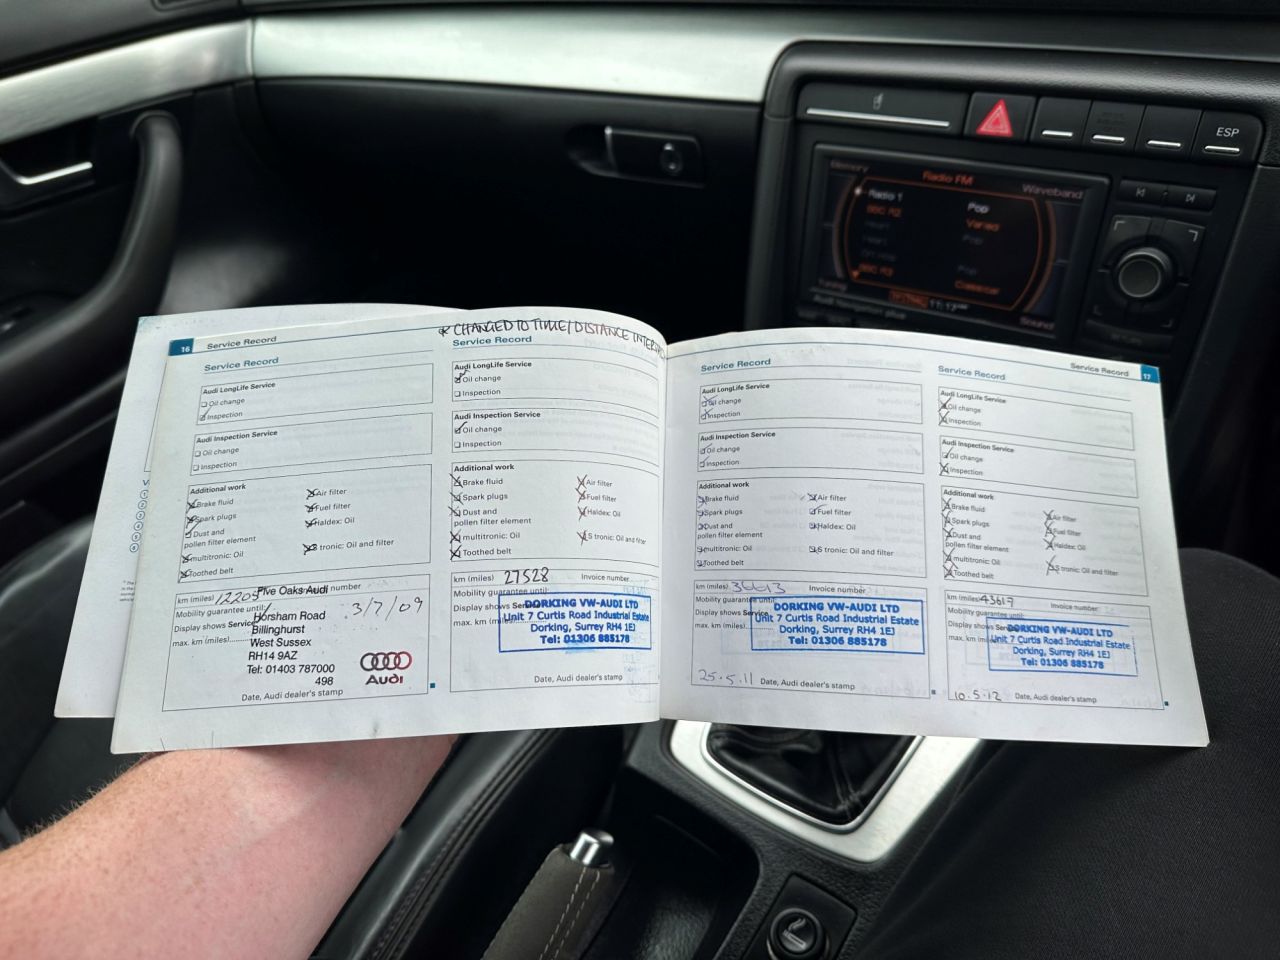 ESP
Memory
Radio FM
Waveband
Radio 1
Pop
BBC R2
Varied
Heart
Pop
Heart
Pop
BBC R3
Classical
Tuning
Sound
Audi Navigation plus
RETURN
16
Service Record
Service Record
Audi LongLife Service
Oil change
Inspection
Audi Inspection Service
Oil change
Inspection
Additional work
Brake fluid
Air filter
Spark plugs
Fuel filter
Dust and
pollen filter element
Haldex: Oil
multitronic: Oil
S tronic: Oil and filter
Toothed belt
km (miles)
number
Mobility guarantee until:
Display shows Service
max. km (miles)
Five Oaks Audi
Horsham Road
Billinghurst
West Sussex
RH14 9AZ
Tel: 01403 787000
498
3/7/09
Audi
Date, Audi dealer's stamp
* CHANGED TO TIME/DISTANCE
Service Record
Audi LongLife Service
Oil change
Inspection
Audi Inspection Service
Oil change
Inspection
Additional work
Brake fluid
Air filter
Spark plugs
Fuel filter
Dust and
pollen filter element
Haldex: Oil
multitronic: Oil
S tronic: Oil and filter
Toothed belt
km (miles) 27528
Invoice number
Mobility guarantee until:
Display shows
max. km (miles)
DORKING VW-AUDI LTD
Unit 7 Curtis Road Industrial Estate
Dorking, Surrey RH4 1EJ
Tel: 01306 885178
Date, Audi dealer's stamp
Service Record
Audi LongLife Service
Oil change
Inspection
Audi Inspection Service
Oil change
Inspection
Additional work
Brake fluid
Air filter
Spark plugs
Fuel filter
Dust and
pollen filter element
Haldex: Oil
multitronic: Oil
S tronic: Oil and filter
Toothed belt
km (miles)
Invoice number
Mobility guarantee until:
Display shows Service
max. km (miles)
DORKING VW-AUDI LTD
Unit 7 Curtis Road Industrial Estate
Dorking, Surrey RH4 1EJ
Tel: 01306 885178
25.5.11
Date, Audi dealer's stamp
Service Record
17
Service Record
Audi LongLife Service
Oil change
Inspection
Audi Inspection Service
Oil change
Inspection
Additional work
Brake fluid
Air filter
Spark plugs
Fuel filter
Dust and
pollen filter element
Haldex: Oil
multitronic: Oil
S tronic: Oil and filter
Toothed belt
km (miles) 43617
Invoice number
Mobility guarantee until:
Display shows
max. km
DORKING VW-AUDI LTD
Unit 7 Curtis Road Industrial Estate
Dorking, Surrey RH4 1EJ
Tel: 01306 885178
10.5.12
Date, Audi dealer's stamp